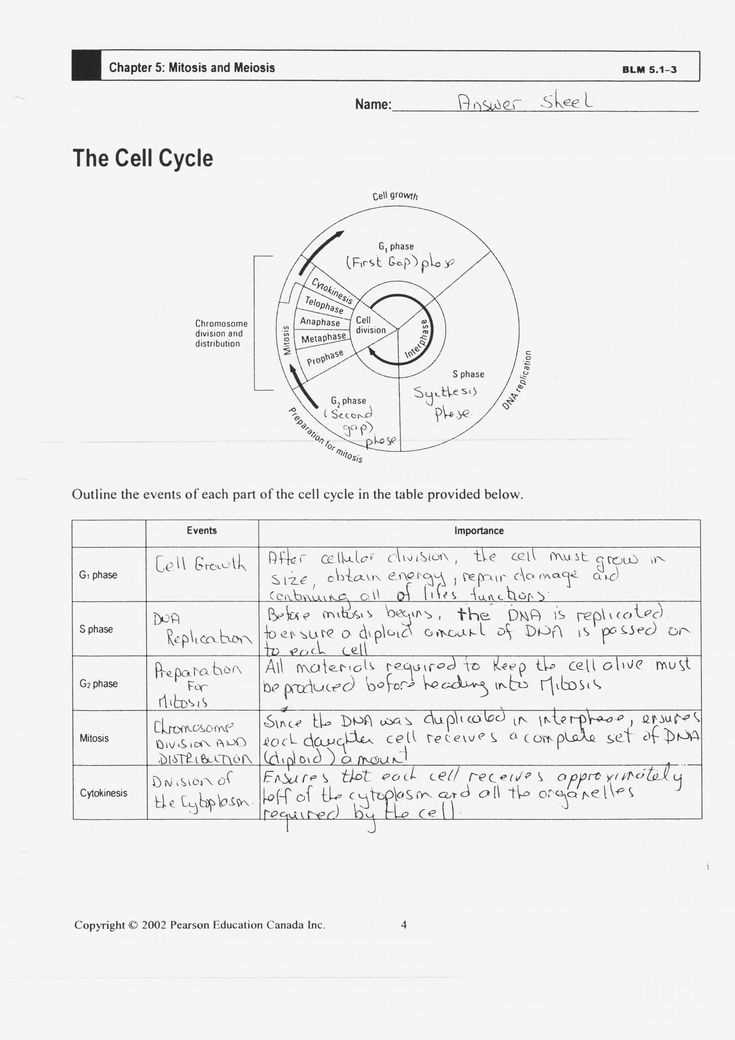 Chapter 5: Mitosis and Meiosis
BLM 5.1–3
Name: Answer Sheet
The Cell Cycle
Cell growth
G₁ phase
(First Gap) phase
Cytokinesis
Telophase
Anaphase
Metaphase
Prophase
Mitosis
Cell
division
Interphase
Chromosome
division and
distribution
S phase
Synthesis
Phase
DNA replication
G₂ phase
(Second
gap)
phase
Preparation for mitosis
Outline the events of each part of the cell cycle in the table provided below.
Events
Importance
G₁ phase
Cell Growth
After cellular division, the cell must grow in
size, obtain energy, repair damage and
continuing all of lifes functions.
S phase
DNA
Replication
Before mitosis begins, the DNA is replicated
to ensure a diploid amount of DNA is passed on
to each cell
G₂ phase
Preparation
For
Mitosis
All materials required to keep the cell alive must
be produced before heading into Mitosis
Mitosis
Chromosome
DIVISION AND
DISTRIBUTION
Since the DNA was duplicated in interphase, ensures
each daughter cell receives a complete set of DNA
(diploid) amount
Cytokinesis
Division of
the Cytoplasm.
Ensures that each cell receives approximately
half of the cytoplasm and all the organelles
required by the cell.
Copyright © 2002 Pearson Education Canada Inc.
4